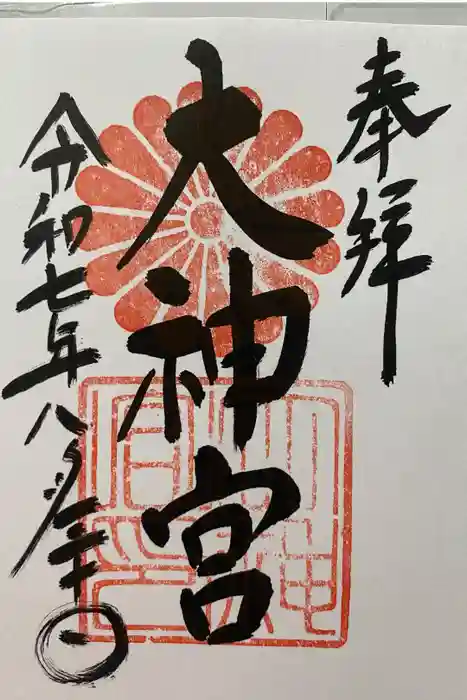 奉拝
大神宮
令和七年八月三十一日